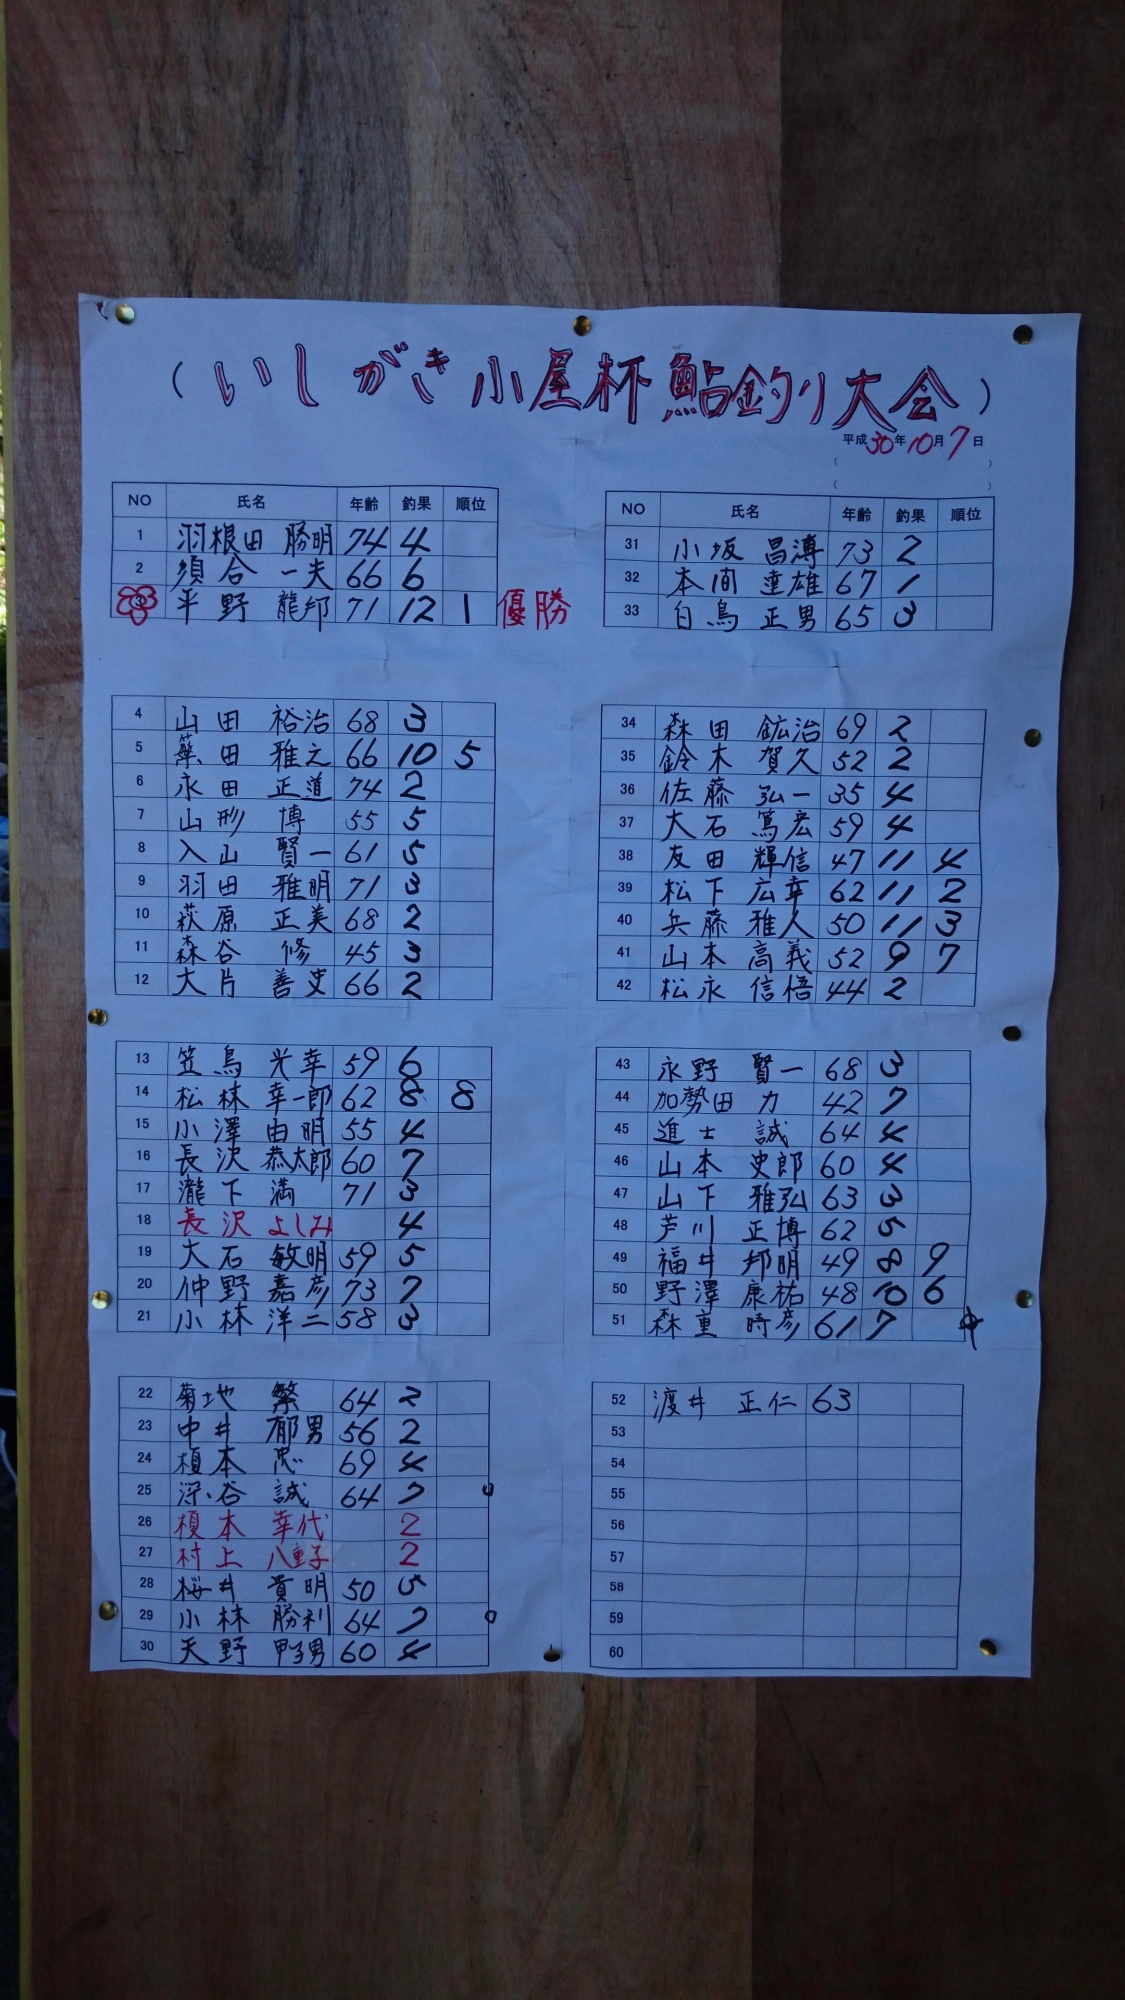 (いしがき小屋杯 鮎釣り大会)
平成30年10月7日
NO 氏名 年齢 釣果 順位
1 羽根田 勝明 74 4
2 須合 一夫 66 6
3 平野 龍邦 71 12 1 優勝
4 山田 裕治 68 3
5 田 雅之 66 10 5
6 永田 正道 74 2
7 山形 博 55 5
8 入山 賢一 61 5
9 羽田 雅明 71 3
10 萩原 正美 68 2
11 森谷 修 45 3
12 大片 善史 66 2
13 笠鳥 光幸 59 6
14 松林 幸一郎 62 8 8
15 小澤 由明 55 4
16 長沢 恭太郎 60 7
17 瀧下 満 71 3
18 長沢 よしみ 4
19 大石 敏明 59 5
20 仲野 嘉彦 73 7
21 小林 洋二 58 3
22 菊地 繁 64 2
23 中井 郁男 56 2
24 榎本 忠 69 4
25 深谷 誠 64 7
26 榎本 幸代 2
27 村上 八重子 2
28 桜井 貴明 50 5
29 小林 勝利 64 7
30 天野 甲子男 60 4
NO 氏名 年齢 釣果 順位
31 小坂 昌溥 73 2
32 本間 達雄 67 1
33 白鳥 正男 65 3
34 森田 鉱治 69 2
35 鈴木 賀久 52 2
36 佐藤 弘一 35 4
37 大石 篤宏 59 4
38 友田 輝信 47 11 4
39 松下 広幸 62 11 2
40 兵藤 雅人 50 11 3
41 山本 高義 52 9 7
42 松永 信悟 44 2
43 永野 賢一 68 3
44 加勢田 力 42 7
45 進士 誠 64 4
46 山本 史郎 60 4
47 山下 雅弘 63 3
48 芦川 正博 62 5
49 福井 邦明 49 8 9
50 野澤 康祐 48 10 6
51 森重 時彦 61 7
52 渡井 正仁 63
53
54
55
56
57
58
59
60